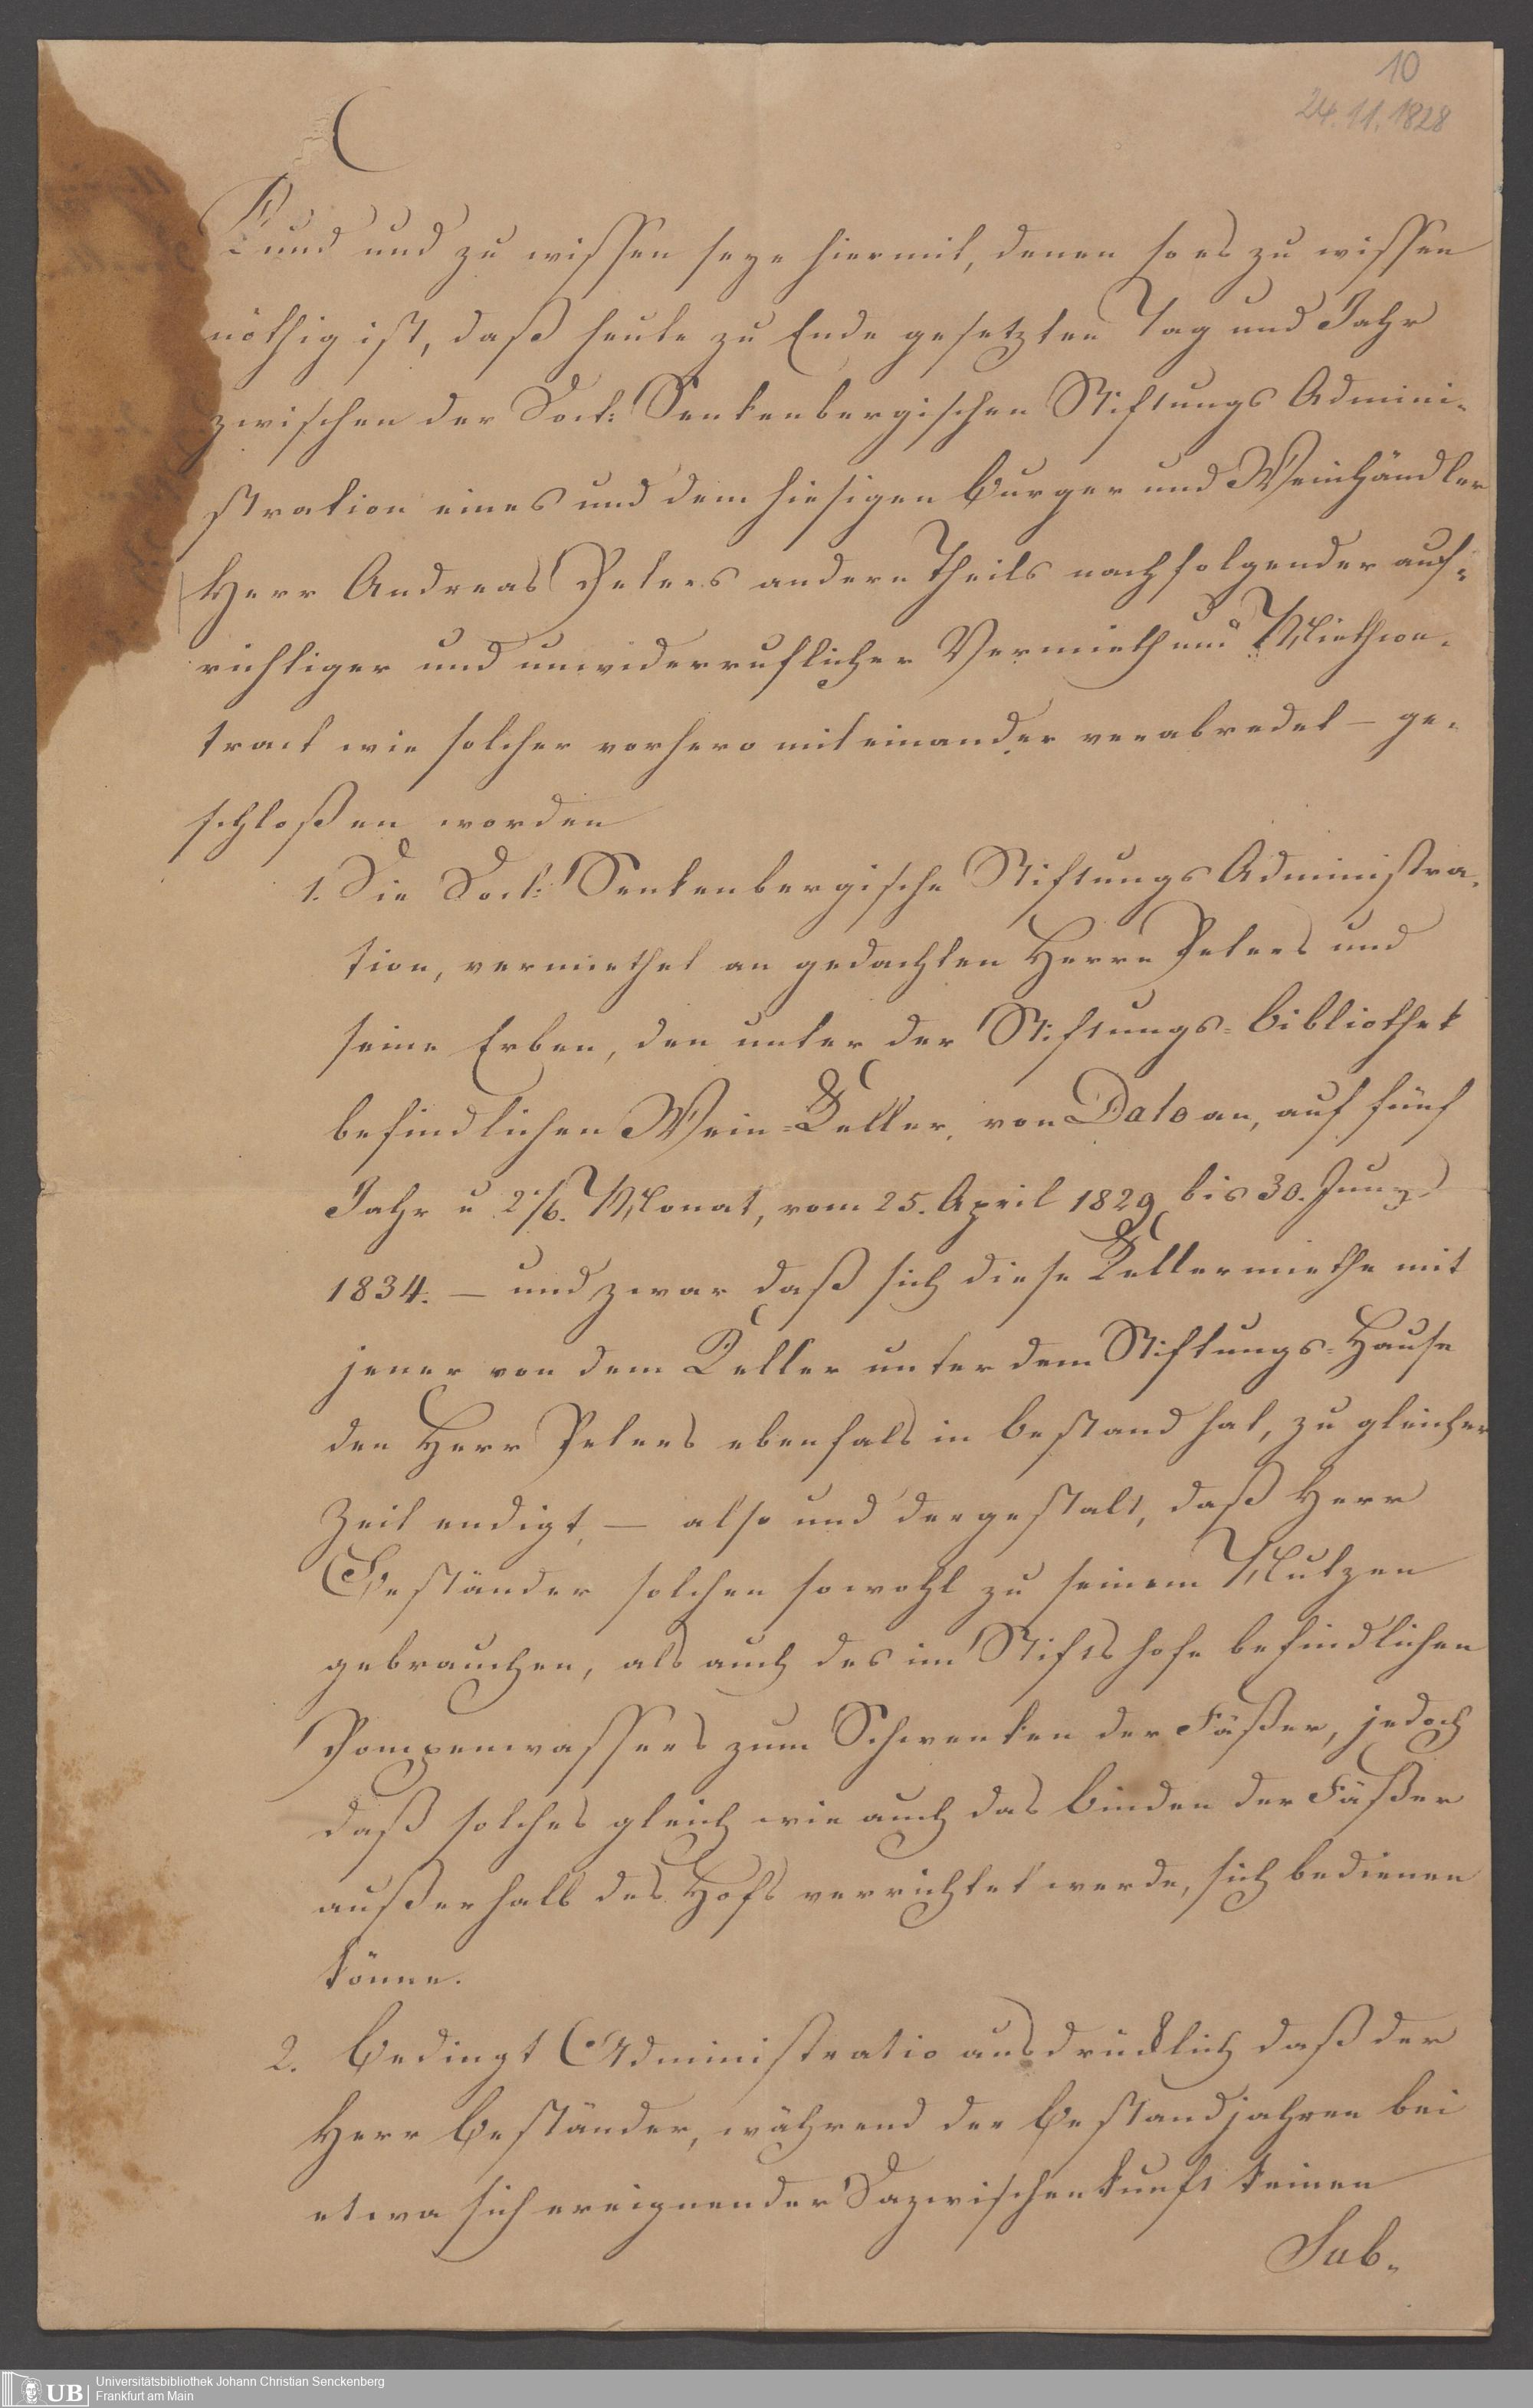 10
24.11.1828
Kund und zu wissen seye hiermit, denen so es zu wissen
nöthig ist, daß heute zu Ende gesetzten Tag und Jahr
zwischen der Doct: Senkenbergischen Stiftungs Admini-
stration eines und dem hiesigen Burger und Weinhändler
Herr Andreas Peters andern Theils nachfolgender auf-
richtiger und unwiderruflicher Vermieth und Miethcon-
tract wie solcher vorhero mit einander verabredet – ge-
schloßen worden
1. Die Doct: Senkenbergische Stiftungs Administra-
tion, vermiethet an gedachten Herrn Peters und
seine Erben, den unter der Stiftungs-Bibliothek
befindlichen Wein-Keller, von Dato an, auf fünf
Jahr u 2 1/6. Monat, vom 25. April 1829 bis 30. Juny
1834. – und zwar daß sich diese Kellermiethe mit
jener von dem Keller unter dem Stiftungs-Hause
den Herr Peters ebenfals in Bestand hat, zu gleicher
Zeit endigt, – also und dergestalt, daß Herr
Beständer solchen sowohl zu seinem Nutzen
gebrauchen, als auch des im Stiftshofe befindlichen
Pompenwassers zum Schwenken der Fäßer, jedoch
daß solches gleich wie auch das Binden der Fäßer
außerhalb des Hofs verrichtet werde, sich bedienen
könne.
2. Bedingt Administratio ausdrücklich daß der
Herr Beständer, während der Bestandjahren bei
etwa sich ereignender Dazwischenkunft keinen
Sub-
UB
Universitätsbibliothek Johann Christian Senckenberg
Frankfurt am Main